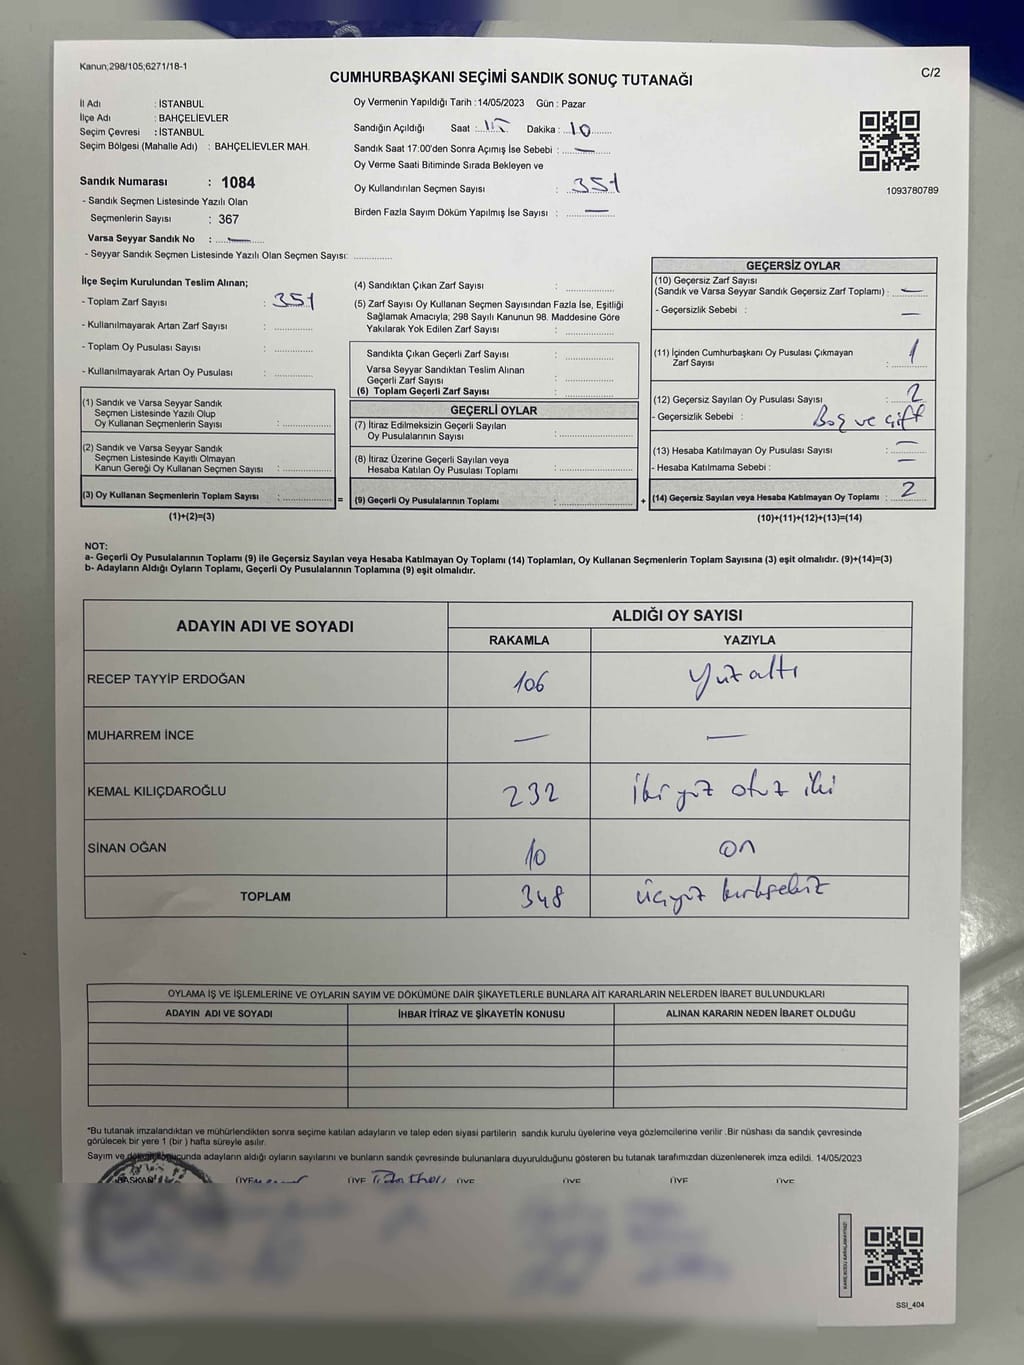 Kanun;298/105;6271/18-1
CUMHURBAŞKANI SEÇİMİ SANDIK SONUÇ TUTANAĞI
C/2
İl Adı : İSTANBUL
İlçe Adı : BAHÇELİEVLER
Seçim Çevresi : İSTANBUL
Seçim Bölgesi (Mahalle Adı) : BAHÇELİEVLER MAH.
Sandık Numarası : 1084
- Sandık Seçmen Listesinde Yazılı Olan
Seçmenlerin Sayısı : 367
Varsa Seyyar Sandık No : —
- Seyyar Sandık Seçmen Listesinde Yazılı Olan Seçmen Sayısı: ..............
Oy Vermenin Yapıldığı Tarih : 14/05/2023 Gün : Pazar
Sandığın Açıldığı Saat : Dakika : 10
Sandık Saat 17:00'den Sonra Açımış İse Sebebi : —
Oy Verme Saati Bitiminde Sırada Bekleyen ve
Oy Kullandırılan Seçmen Sayısı : 351
Birden Fazla Sayım Döküm Yapılmış İse Sayısı : —
1093780789
İlçe Seçim Kurulundan Teslim Alınan;
- Toplam Zarf Sayısı : 351
- Kullanılmayarak Artan Zarf Sayısı : ..............
- Toplam Oy Pusulası Sayısı : ..............
- Kullanılmayarak Artan Oy Pusulası : ..............
(1) Sandık ve Varsa Seyyar Sandık
Seçmen Listesinde Yazılı Olup
Oy Kullanan Seçmenlerin Sayısı : ..............
(2) Sandık ve Varsa Seyyar Sandık
Seçmen Listesinde Kayıtlı Olmayan
Kanun Gereği Oy Kullanan Seçmen Sayısı : ..............
(3) Oy Kullanan Seçmenlerin Toplam Sayısı : .............. =
(1)+(2)=(3)
(4) Sandıktan Çıkan Zarf Sayısı : ..............
(5) Zarf Sayısı Oy Kullanan Seçmen Sayısından Fazla İse, Eşitliği
Sağlamak Amacıyla; 298 Sayılı Kanunun 98. Maddesine Göre
Yakılarak Yok Edilen Zarf Sayısı : ..............
Sandıkta Çıkan Geçerli Zarf Sayısı : ..............
Varsa Seyyar Sandıktan Teslim Alınan
Geçerli Zarf Sayısı : ..............
(6) Toplam Geçerli Zarf Sayısı : ..............
GEÇERLİ OYLAR
(7) İtiraz Edilmeksizin Geçerli Sayılan
Oy Pusulalarının Sayısı : ..............
(8) İtiraz Üzerine Geçerli Sayılan veya
Hesaba Katılan Oy Pusulası Toplamı : ..............
(9) Geçerli Oy Pusulalarının Toplamı : .............. +
GEÇERSİZ OYLAR
(10) Geçersiz Zarf Sayısı
(Sandık ve Varsa Seyyar Sandık Geçersiz Zarf Toplamı) : —
- Geçersizlik Sebebi : —
(11) İçinden Cumhurbaşkanı Oy Pusulası Çıkmayan
Zarf Sayısı : 1
(12) Geçersiz Sayılan Oy Pusulası Sayısı : 2
- Geçersizlik Sebebi : Boş ve çift
(13) Hesaba Katılmayan Oy Pusulası Sayısı : —
- Hesaba Katılmama Sebebi : —
(14) Geçersiz Sayılan veya Hesaba Katılmayan Oy Toplamı : 2
(10)+(11)+(12)+(13)=(14)
NOT:
a- Geçerli Oy Pusulalarının Toplamı (9) ile Geçersiz Sayılan veya Hesaba Katılmayan Oy Toplamı (14) Toplamları, Oy Kullanan Seçmenlerin Toplam Sayısına (3) eşit olmalıdır. (9)+(14)=(3)
b- Adayların Aldığı Oyların Toplamı, Geçerli Oy Pusulalarının Toplamına (9) eşit olmalıdır.
ADAYIN ADI VE SOYADI
ALDIĞI OY SAYISI
RAKAMLA YAZIYLA
RECEP TAYYİP ERDOĞAN 106 Yüzaltı
MUHARREM İNCE — —
KEMAL KILIÇDAROĞLU 232 İki yüz otuz iki
SİNAN OĞAN 10 on
TOPLAM 348 üçyüz kırksekiz
OYLAMA İŞ VE İŞLEMLERİNE VE OYLARIN SAYIM VE DÖKÜMÜNE DAİR ŞİKAYETLERLE BUNLARA AİT KARARLARIN NELERDEN İBARET BULUNDUKLARI
ADAYIN ADI VE SOYADI İHBAR İTİRAZ VE ŞİKAYETİN KONUSU ALINAN KARARIN NEDEN İBARET OLDUĞU
*Bu tutanak imzalandıktan ve mühürlendikten sonra seçime katılan adayların ve talep eden siyasi partilerin sandık kurulu üyelerine veya gözlemcilerine verilir .Bir nüshası da sandık çevresinde
görülecek bir yere 1 (bir ) hafta süreyle asılır.
Sayım ve döküm sonucunda adayların aldığı oyların sayılarını ve bunların sandık çevresinde bulunanlara duyurulduğunu gösteren bu tutanak tarafımızdan düzenlenerek imza edildi. 14/05/2023
BAŞKAN ÜYE ÜYE ÜYE ÜYE ÜYE ÜYE
SSI_404